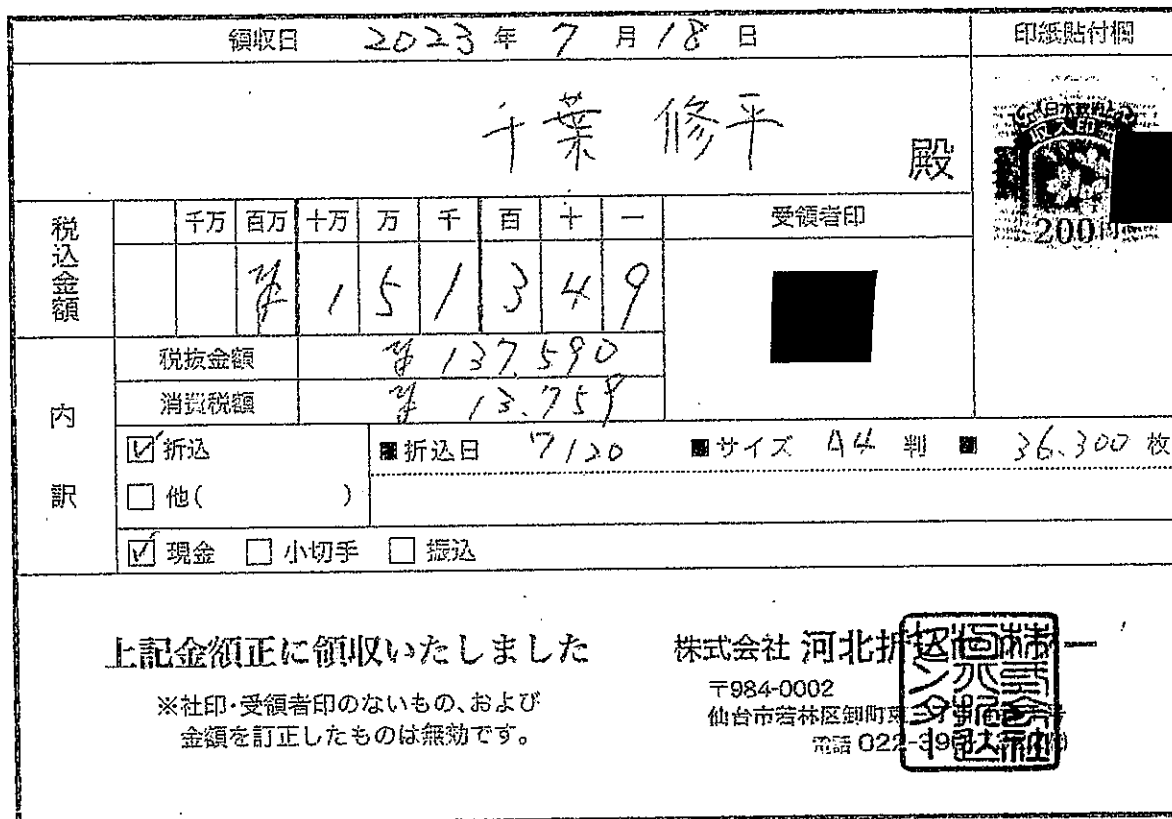 領収日 2023 年 7 月 18 日
印紙貼付欄
千葉 修平 殿
日本政府
収入印紙
200円
税込金額
千万 百万 十万 万 千 百 十 一
¥ 1 5 1 3 4 9
受領者印
内訳
税抜金額 ¥ 137,590
消費税額 ¥ 13,759
☑ 折込 ■折込日 7/20 ■サイズ A4 判 ■ 36,300 枚
☐ 他( )
☑ 現金 ☐ 小切手 ☐ 振込
上記金額正に領収いたしました
※社印・受領者印のないもの、および
金額を訂正したものは無効です。
株式会社 河北折込センター
〒984-0002
仙台市若林区卸町東
電話 022-39